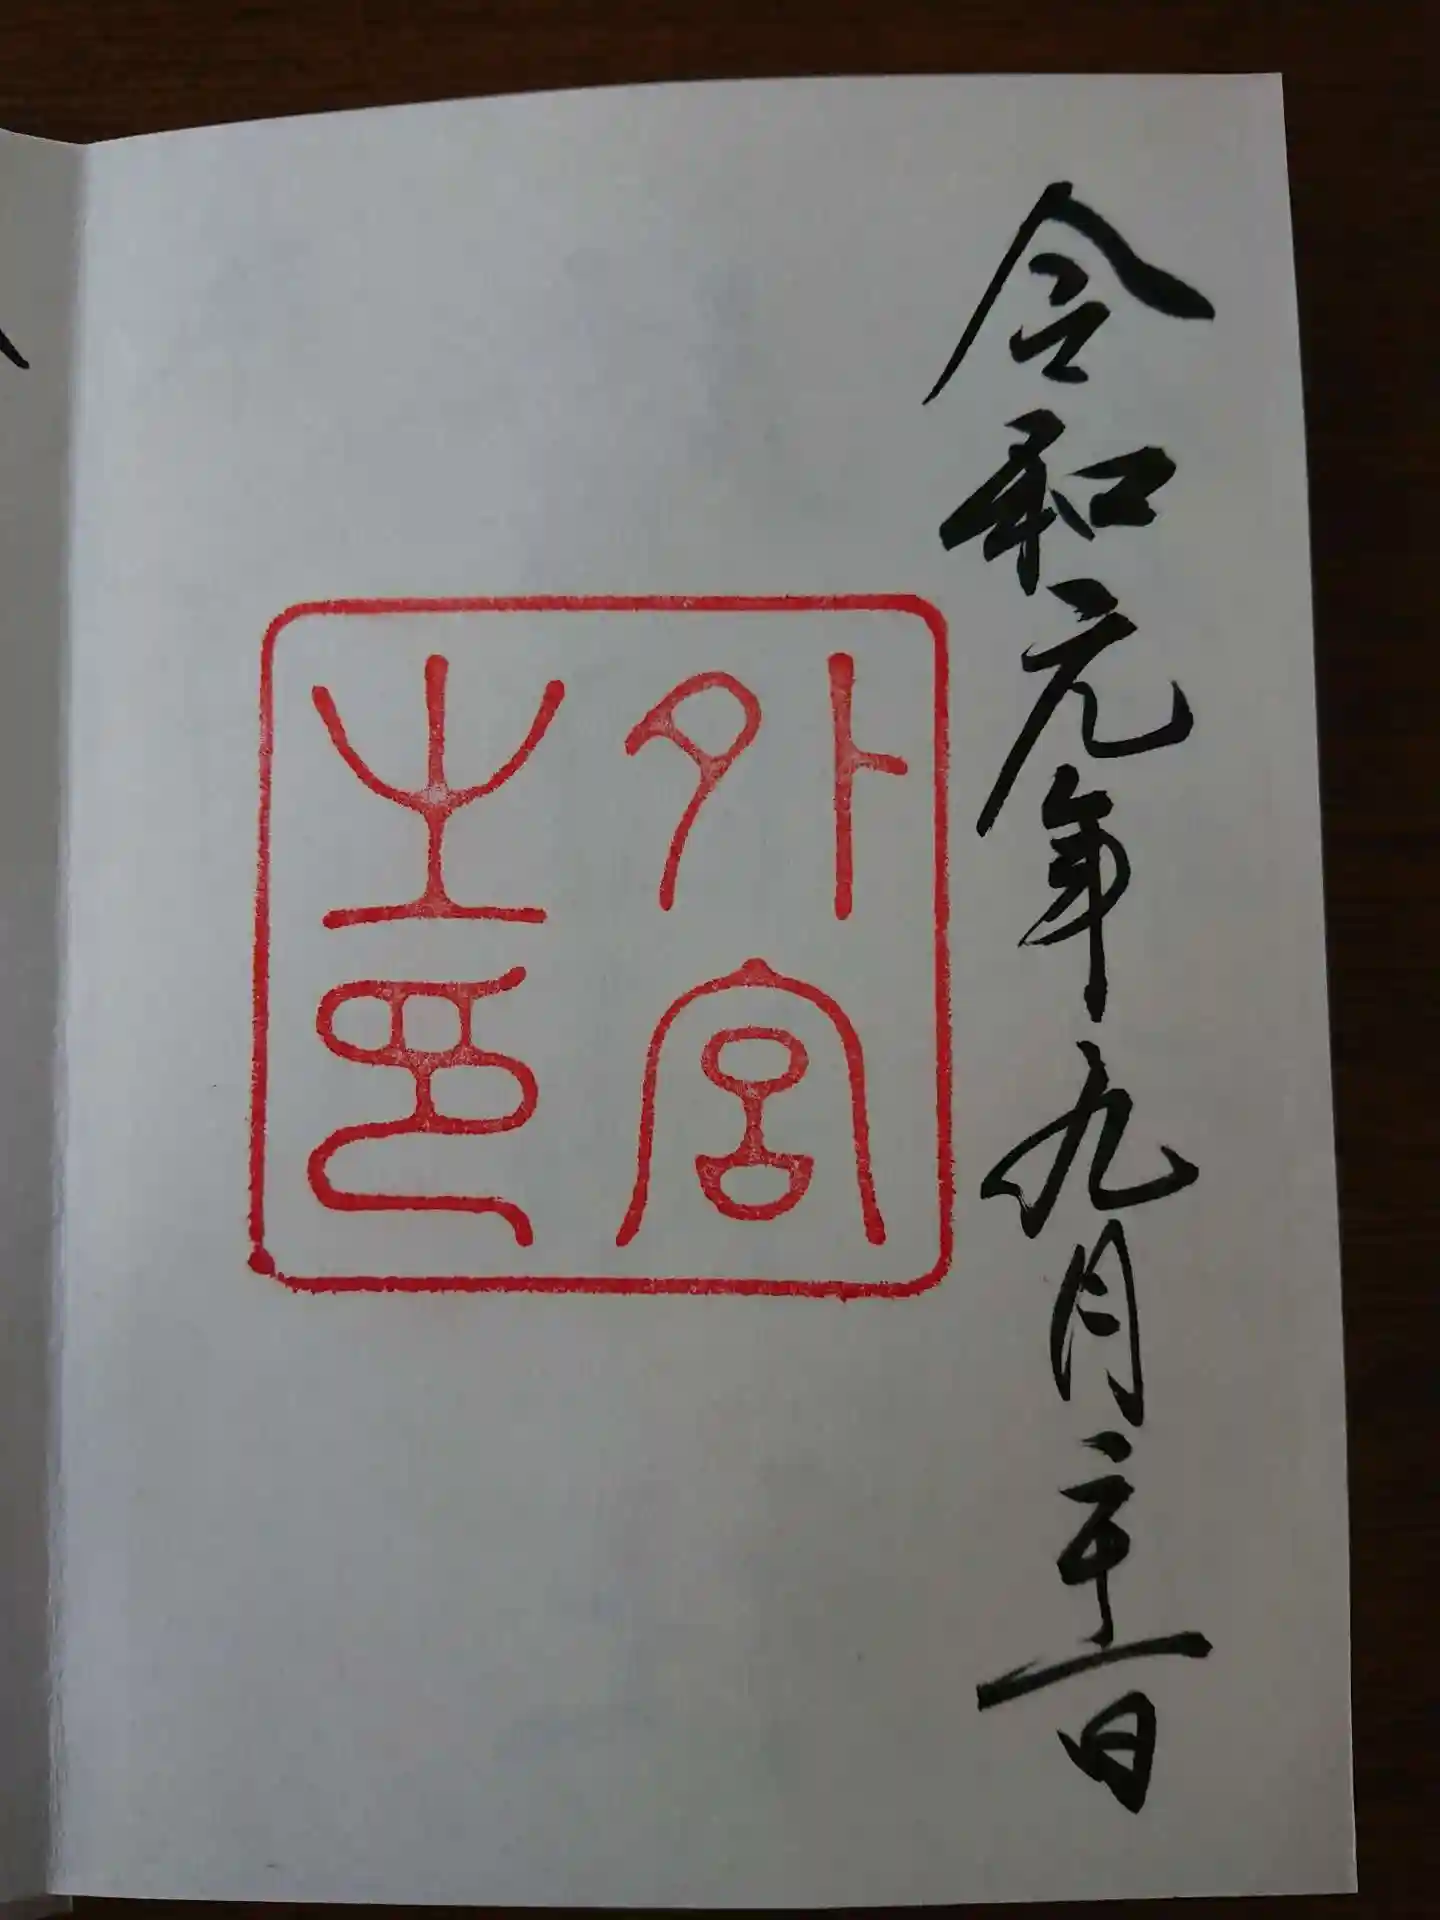 令和元年九月二十一日
外宮
之印